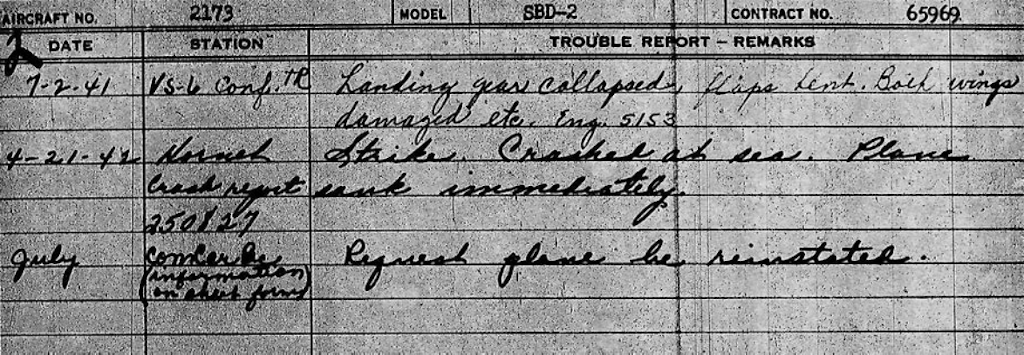 AIRCRAFT NO. 2173 MODEL SBD-2 CONTRACT NO. 65969
2
DATE STATION TROUBLE REPORT – REMARKS
7-2-41 VS-6 Conf. TR Landing gear collapsed, flaps bent. Both wings
damaged etc. Eng. 5153
4-21-42 Hornet Strike. Crashed at sea. Plane
Crash report sank immediately.
250127
July Request plane be reinstated.
(information
on short form)